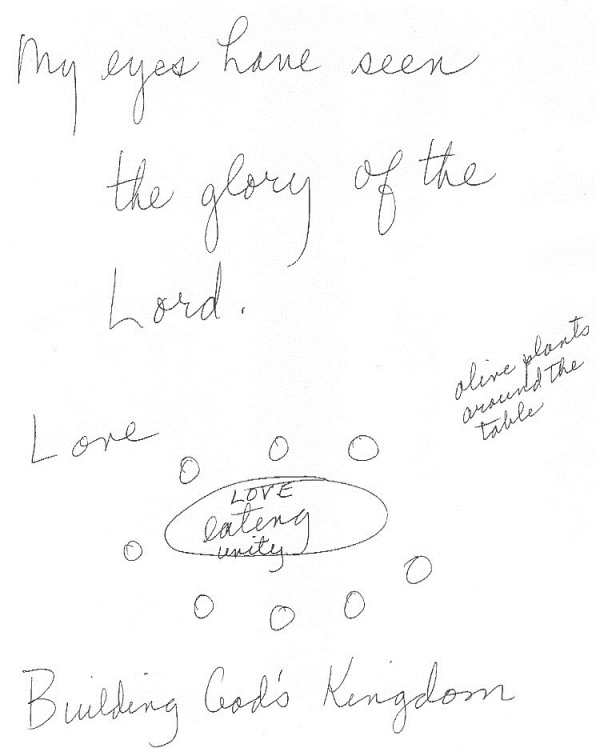 My eyes have seen
the glory of the
Lord.
olive plants
around the
table
Love
LOVE
eating
unity
Building God's Kingdom